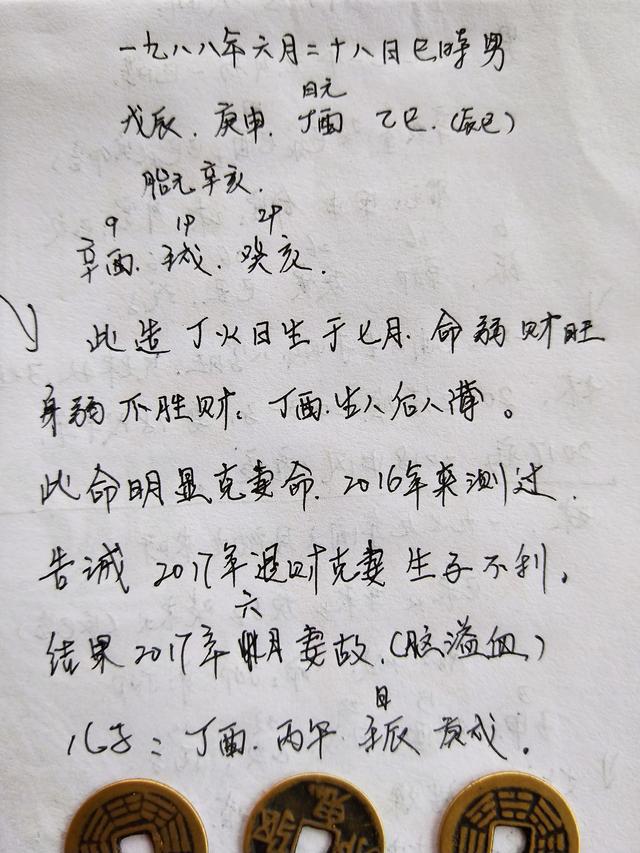 一九八八年六月二十八日巳时男
日元
戊辰.庚申.丁酉 乙巳.(辰巳)
胎元辛亥.
9 19 29
辛酉.壬戌.癸亥.
此造丁火日生于七月.命弱财旺
身弱不胜财.丁酉.生人后人薄。
此命明显克妻命.2016年来测过.
告诫2017年遇财克妻生子不利。
六
结果2017年月妻故.(脑溢血)
日
儿子:丁酉.丙午.壬辰.庚戌.